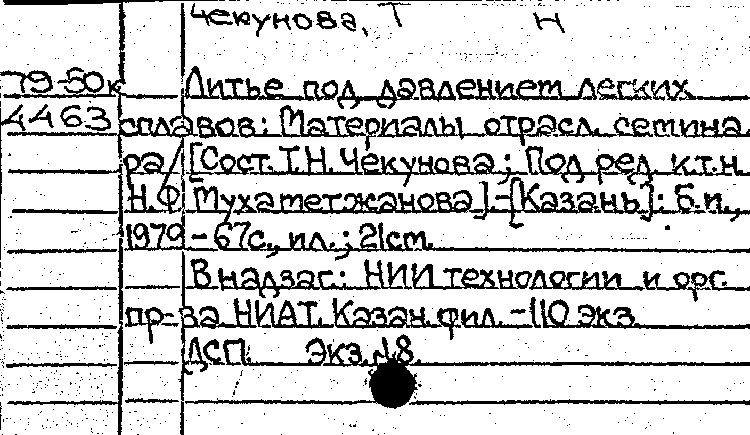 Чекунова, Т Н
79-50к Литье под давлением легких
4463 сплавов: Материалы отрасл. семина
ра/[Сост. Т.Н. Чекунова; Под ред к.т.н.
Н.Ф Мухаметжанова].-[Казань]: Б.и.,
1979 - 67с., ил.; 21см.
В надзаг.: НИИ технологии и орг.
пр-ва НИАТ. Казан. фил. - 110 экз
ДСП. Экз. 18.